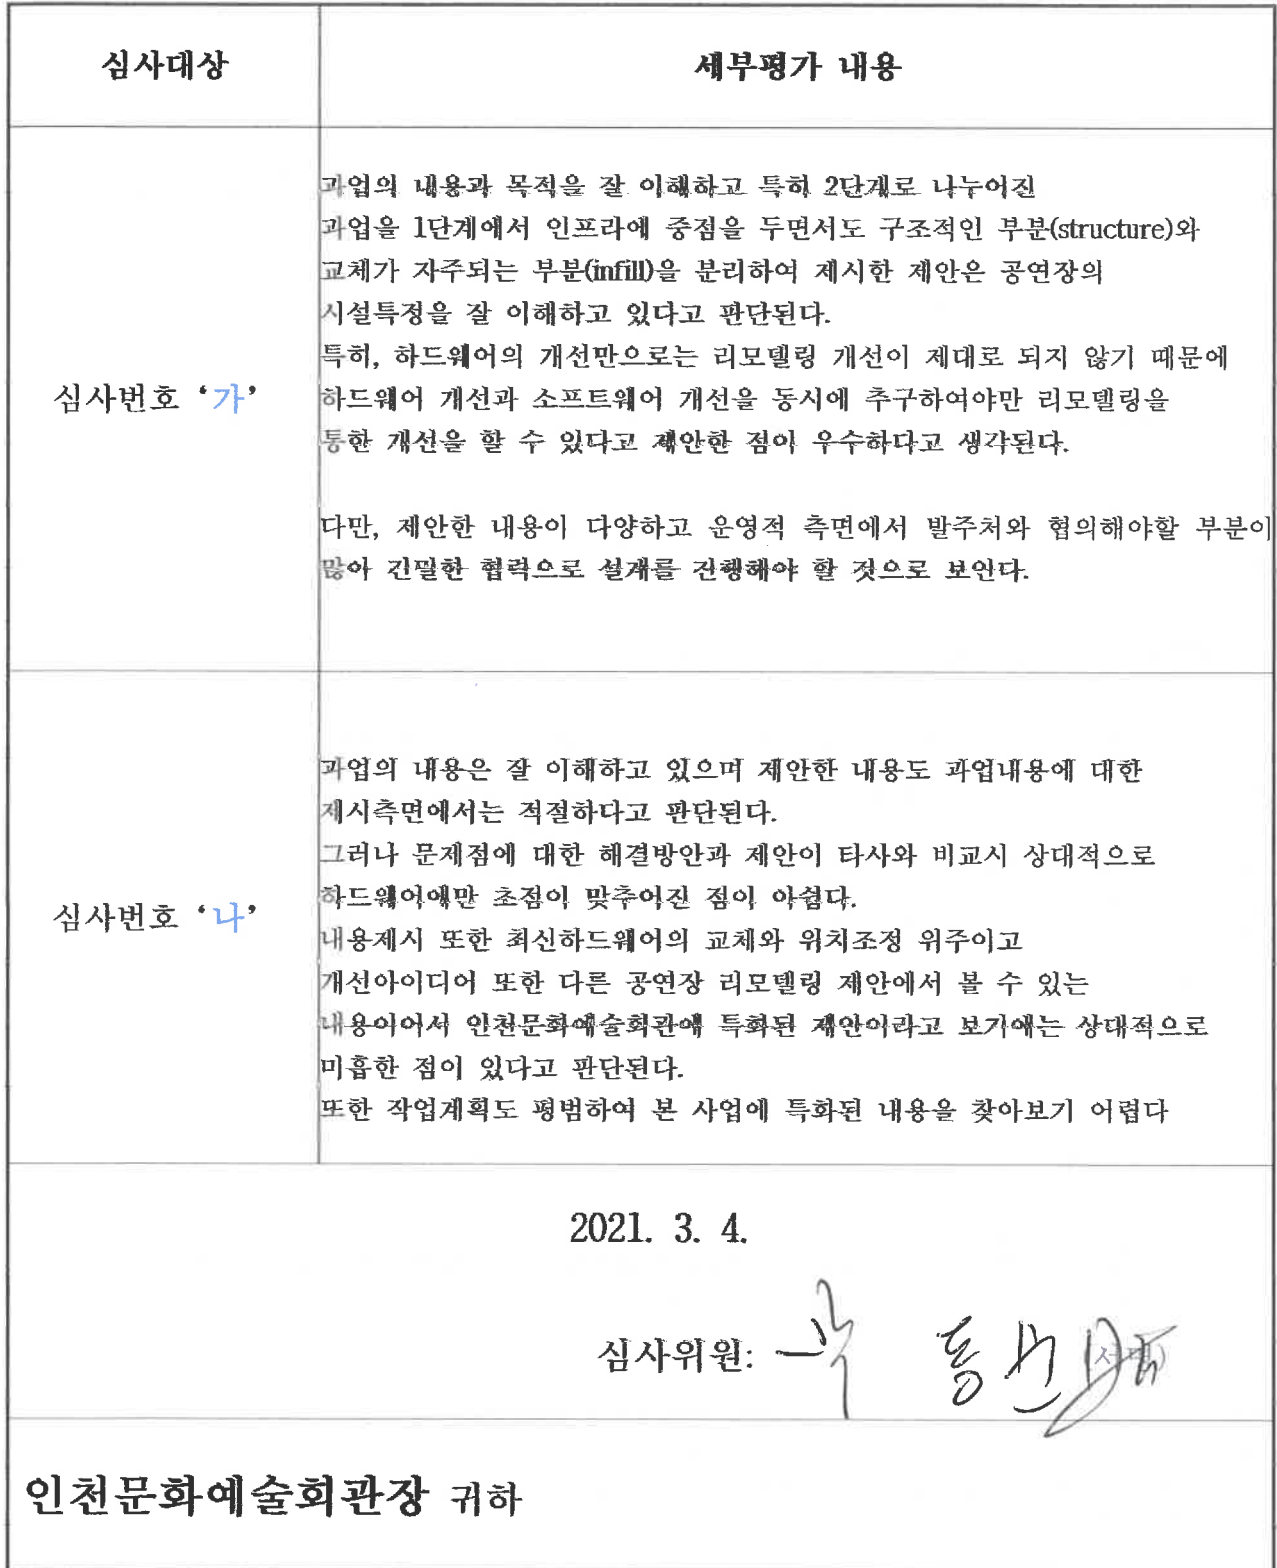 심사대상
세부평가 내용
심사번호 ‘가’
과업의 내용과 목적을 잘 이해하고 특히 2단계로 나누어진
과업을 1단계에서 인프라에 중점을 두면서도 구조적인 부분(structure)와
교체가 자주되는 부분(infill)을 분리하여 제시한 제안은 공연장의
시설특정을 잘 이해하고 있다고 판단된다.
특히, 하드웨어의 개선만으로는 리모델링 개선이 제대로 되지 않기 때문에
하드웨어 개선과 소프트웨어 개선을 동시에 추구하여야만 리모델링을
통한 개선을 할 수 있다고 제안한 점이 우수하다고 생각된다.
다만, 제안한 내용이 다양하고 운영적 측면에서 발주처와 협의해야할 부분이
많아 긴밀한 협력으로 설계를 진행해야 할 것으로 보인다.
심사번호 ‘나’
과업의 내용은 잘 이해하고 있으며 제안한 내용도 과업내용에 대한
제시측면에서는 적절하다고 판단된다.
그러나 문제점에 대한 해결방안과 제안이 타사와 비교시 상대적으로
하드웨어에만 초점이 맞추어진 점이 아쉽다.
내용제시 또한 최신하드웨어의 교체와 위치조정 위주이고
개선아이디어 또한 다른 공연장 리모델링 제안에서 볼 수 있는
내용이어서 인천문화예술회관에 특화된 제안이라고 보기에는 상대적으로
미흡한 점이 있다고 판단된다.
또한 작업계획도 평범하여 본 사업에 특화된 내용을 찾아보기 어렵다
2021. 3. 4.
심사위원: (서명)
인천문화예술회관장 귀하